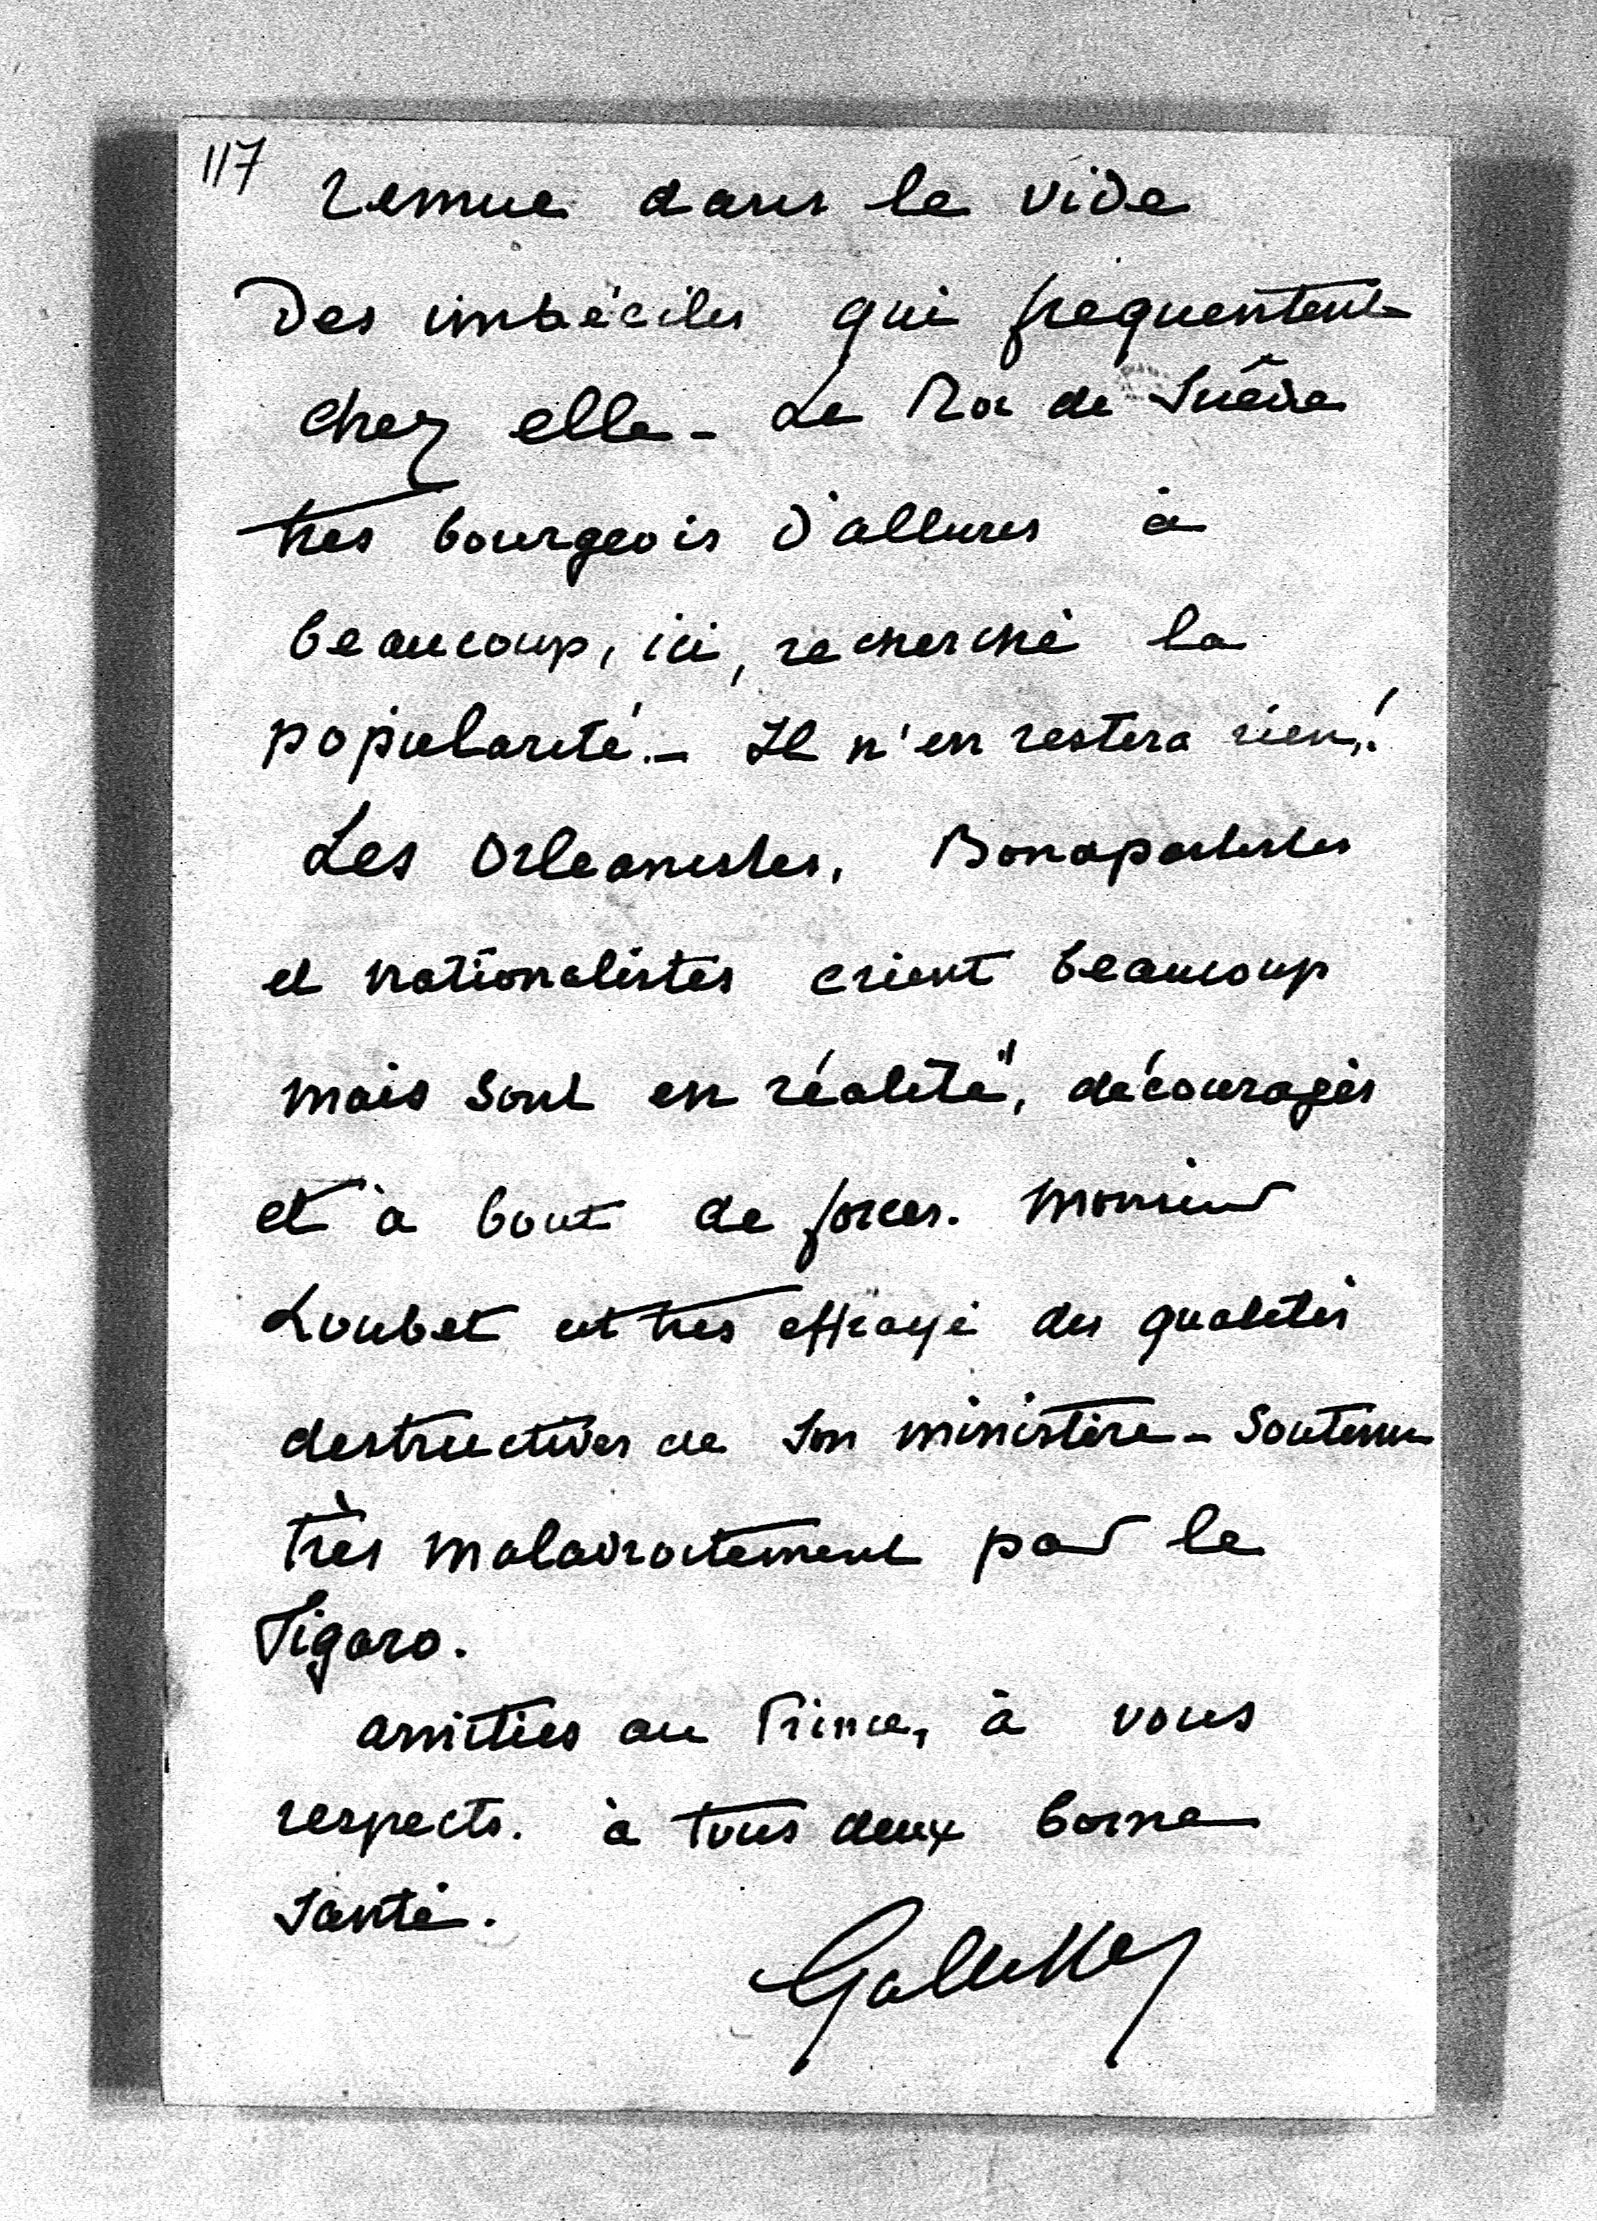 117 remue dans le vide
Des imbéciles qui frequentent
chez elle - Le Roi de Suède
tres bourgeois d'allures à
beaucoup, ici, recherché la
popularité. - Il n'en restera rien!
Les Orleanistes, Bonapartistes
et nationalistes crient beaucoup
mais sont en réalité, découragés
et à bout de forces. Monsieur
Loubet est tres effrayé des qualités
destructives de son ministère - Soutenu
très maladroitement par le
Figaro.
amitiés au Prince, à vous
respects. à tous deux bonne
santé.
Galliffet